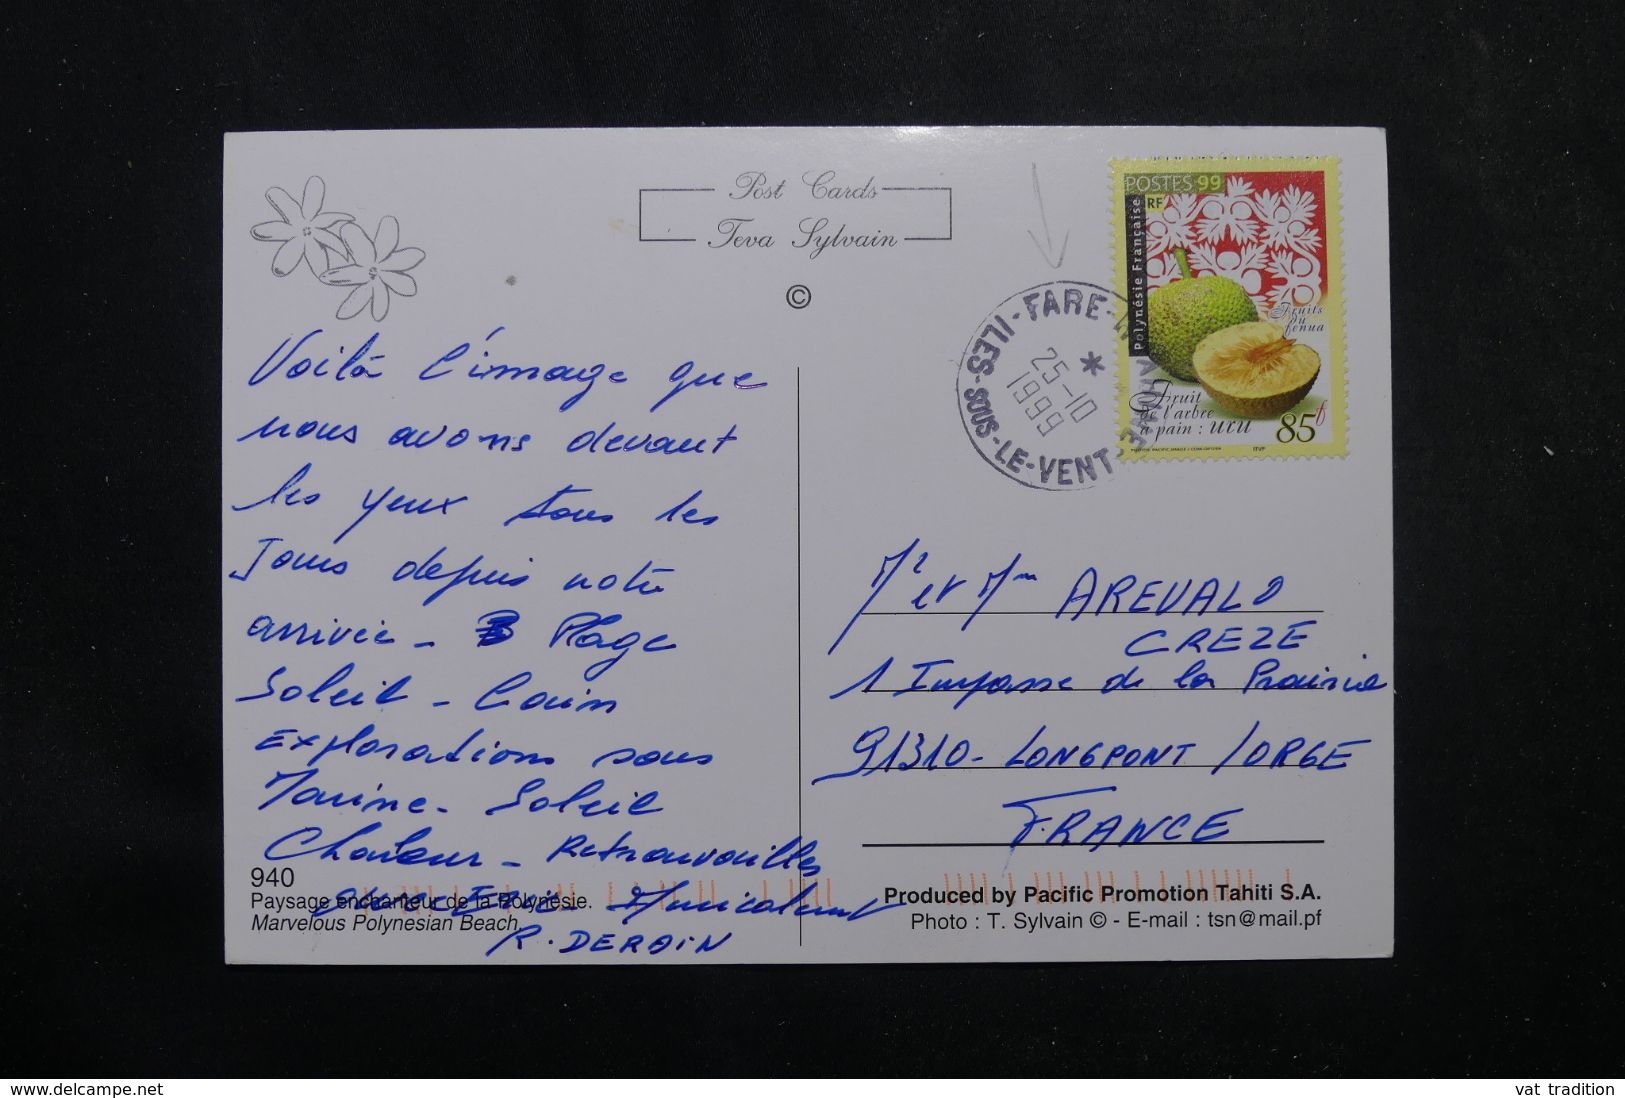 Post Cards
Teva Sylvain
©
POSTES 99
RF
Polynésie Française
Fruits
du
fenua
Fruit
de l'arbre
à pain : uru
85f
FARE - HUAHINE - ILES - SOUS - LE - VENT
*
25-10
1999
Voilà l'image que
nous avons devant
les yeux tous les
Jours depuis notre
arrivée - Plage
Soleil -
Explorations sous
Marine - Soleil
Chaleur - Retrouvailles
avec Amicalement
R. DEROIN
Mr et Mme AREVALO
CREZE
1 Impasse de la Prairie
91310 - LONGPONT / ORGE
FRANCE
940
Paysage enchanteur de la Polynésie.
Marvelous Polynesian Beach.
Produced by Pacific Promotion Tahiti S.A.
Photo : T. Sylvain © - E-mail : tsn@mail.pf
delcampe.net
vat tradition